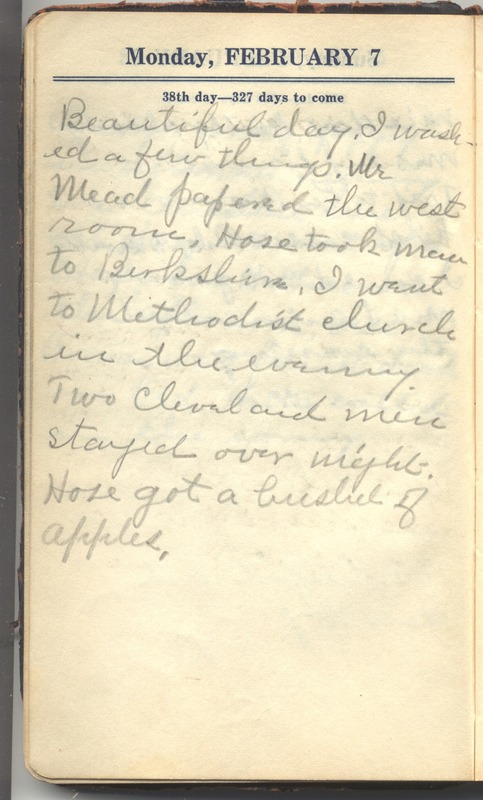 Monday, FEBRUARY 7
38th day—327 days to come
Beautiful day. I wash-
ed a few things. Mr
Mead papered the west
room. Hose took man
to Berkshire. I went
to Methodist church
in the evening.
Two Cleveland men
stayed over night.
Hose got a bushel of
apples.